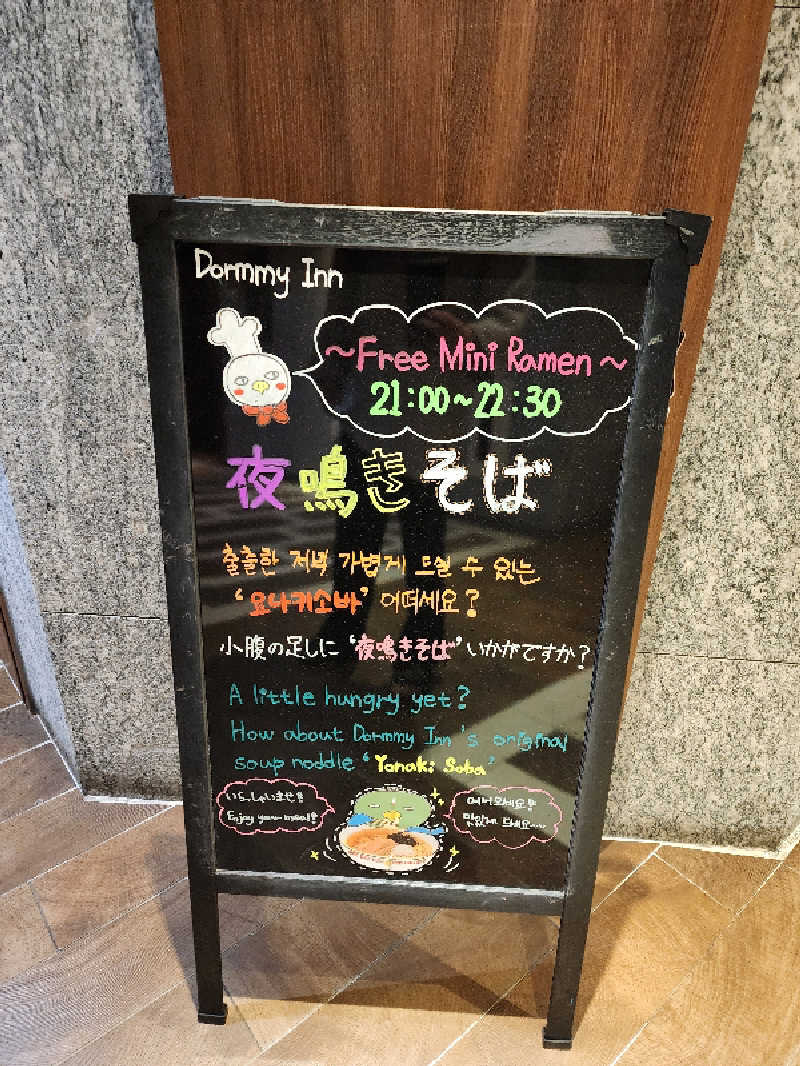 Dormmy Inn
~Free Mini Ramen~
21:00~22:30
夜鳴きそば
출출한 저녁 가볍게 드실 수 있는
‘요나키소바’ 어떠세요?
小腹の足しに‘夜鳴きそば’いかがですか?
A little hungry yet?
How about Dormmy Inn's original
soup noddle ‘Yonaki Soba’
いらっしゃいませ!
Enjoy your meal!
어서오세요!
맛있게 드세요~